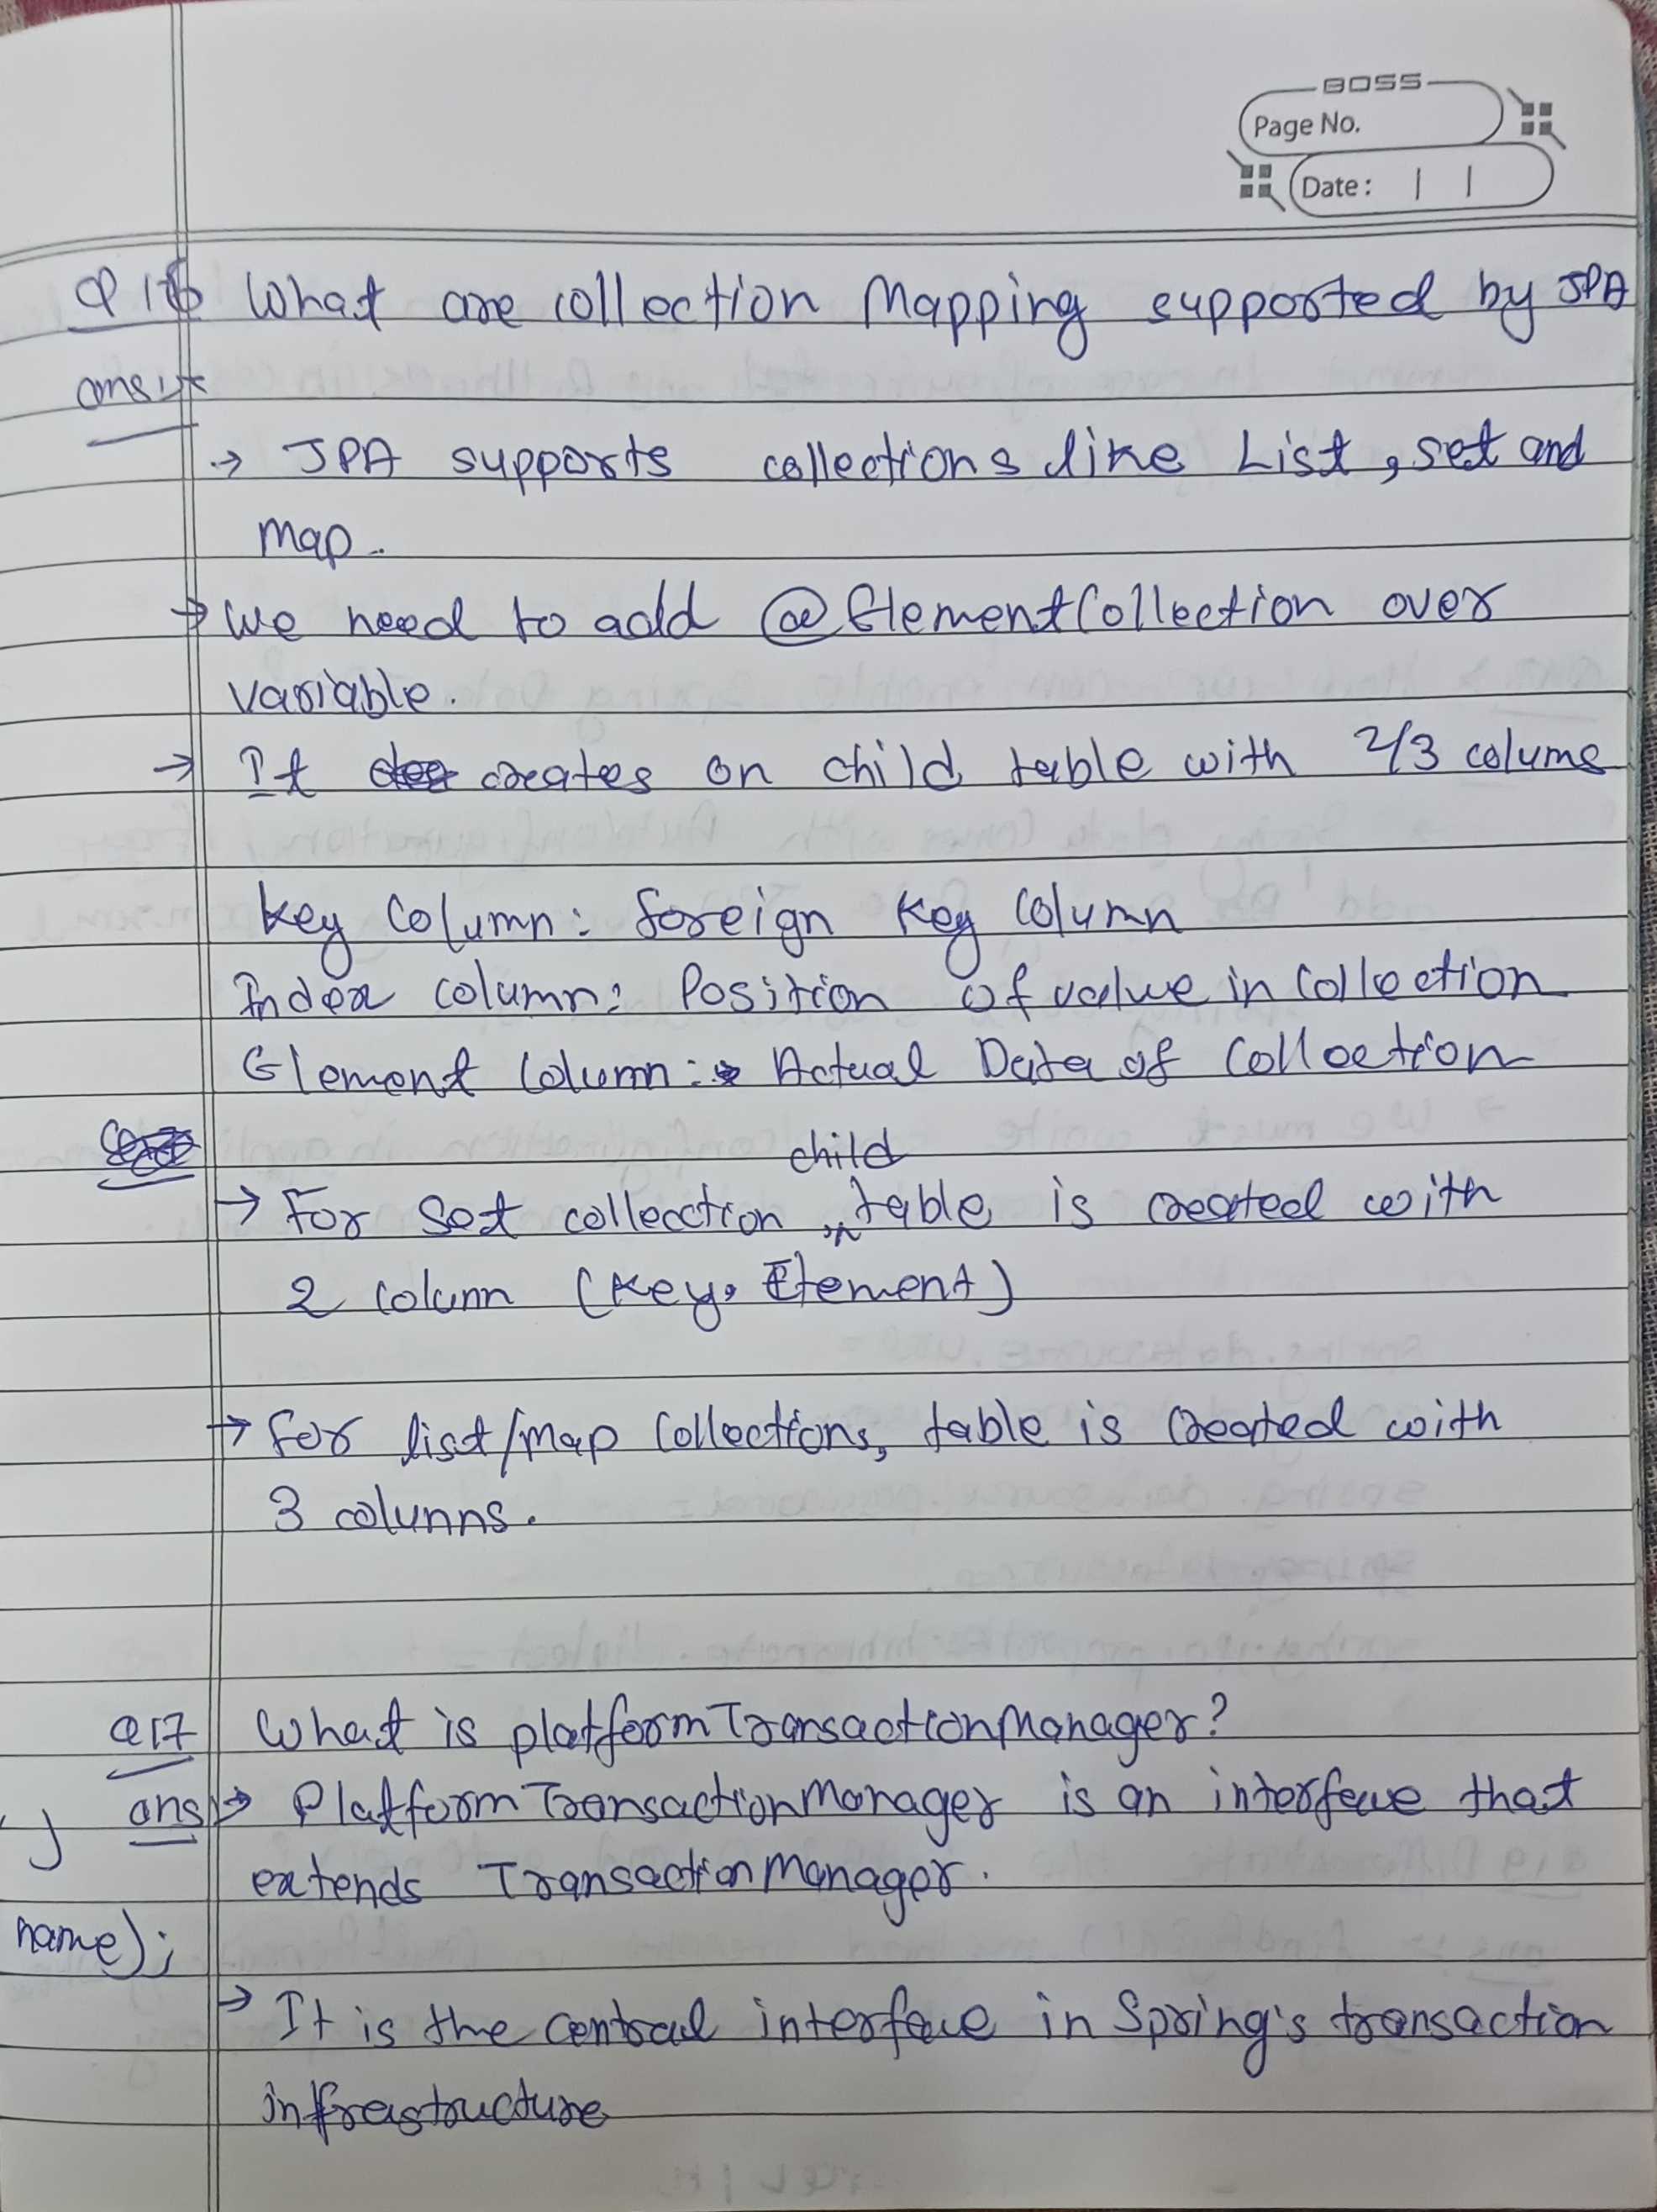 BOSS
Page No.
Date :
Q 16 What are collection Mapping supported by JPA
ans :→
→ JPA supports collections like List, set and
Map.
→ We need to add @ElementCollection over
variable.
→ It creates on child table with 2/3 colums
key Column: foreign key Column
Index column: Position of value in Collection
Element Column: Actual Data of Collection
child
→ For Set collecction, table is created with
2 column (Key, Element)
→ for list/map Collections, table is Created with
3 columns.
Q17 What is platformTransactionManager?
ans → PlatformTransactionManager is an interface that
)
extends TransactionManager.
name);
→ It is the central interface in Spring's transaction
infrastructure